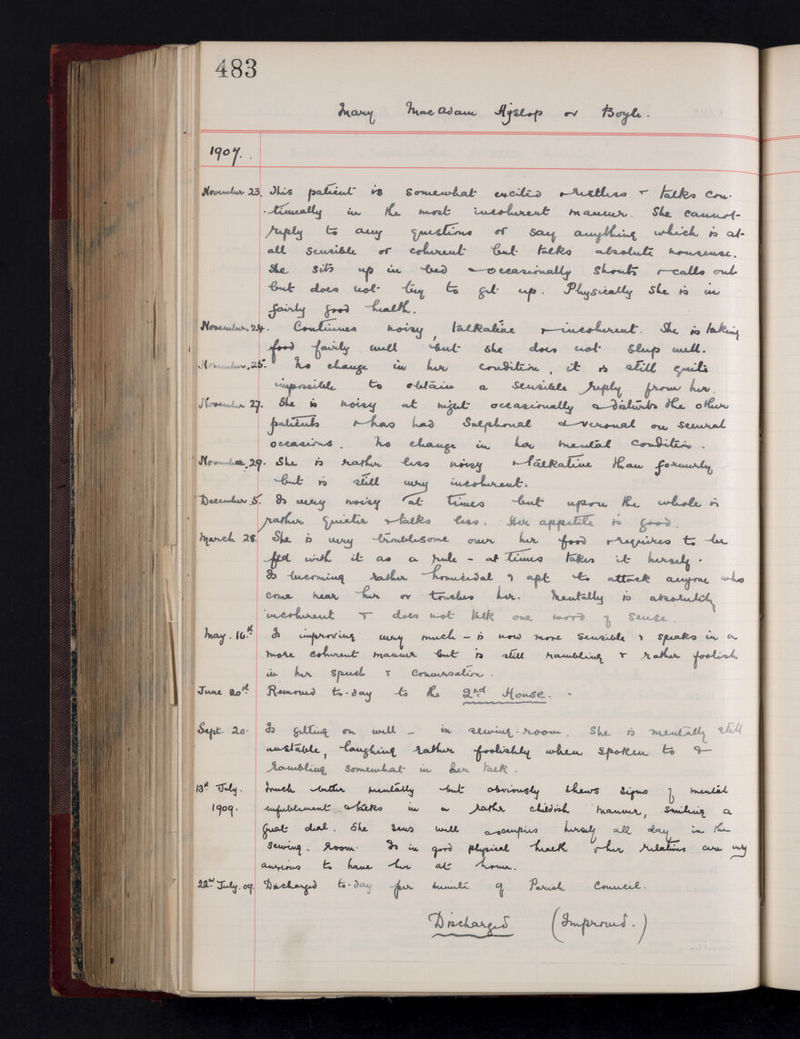 483
Mary MacAdam Hyslop or Boyle.
1907.
November 23. This patient is somewhat excited & restless & talks con-
-tinually in the most incoherent manner. She cannot
reply to any questions or say anything which is at
all sensible or coherent but talks absolute nonsense.
She sits up in bed & occasionally shouts & calls out
but does not try to get up. Physically she is in
fairly good health.
November 24. Continues noisy, talkative & incoherent. She is taking
food fairly well but she does not sleep well.
November 25. No change in her condition, it is still quite
impossible to obtain a sensible reply from her.
November 27. She is noisy at night occasionally & disturbs the other
patients & has had Sulphonal & Veronal on several
occasions. No change in her mental condition.
November 29. She is rather less noisy & talkative than formerly
but is still very incoherent.
December 5. Is very noisy at times but upon the whole is
rather quieter & talks less. Her appetite is good.
March 28. She is very troublesome over her food & requires to be
fed with it as a rule - at times takes it herself.
Is becoming rather homicidal & apt to attack anyone who
come near her or touches her. Mentally is absolutely
incoherent & does not talk one word of sense.
May. 16th. Is improving very much - is now more sensible & speaks in a
more coherent manner but is still rambling & rather foolish
in her speech & conversation.
June 20th. Removed to-day to the 2nd House.
Sept. 20. Is getting on well - in sewing-room. She is mentally still
unstable, laughing rather foolishly when spoken to &
rambling somewhat in her talk.
13th July. Much better mentally but obviously shews signs of mental
1909. enfeeblement & talks in a rather childish manner, smiling a
great deal. She sews well & occupies herself all day in the
sewing-room. Is in good physical health & her relatives are very
anxious to have her at home.
22nd July. 09. Discharged to-day per minute of Parish Council.
Discharged (Improved.)